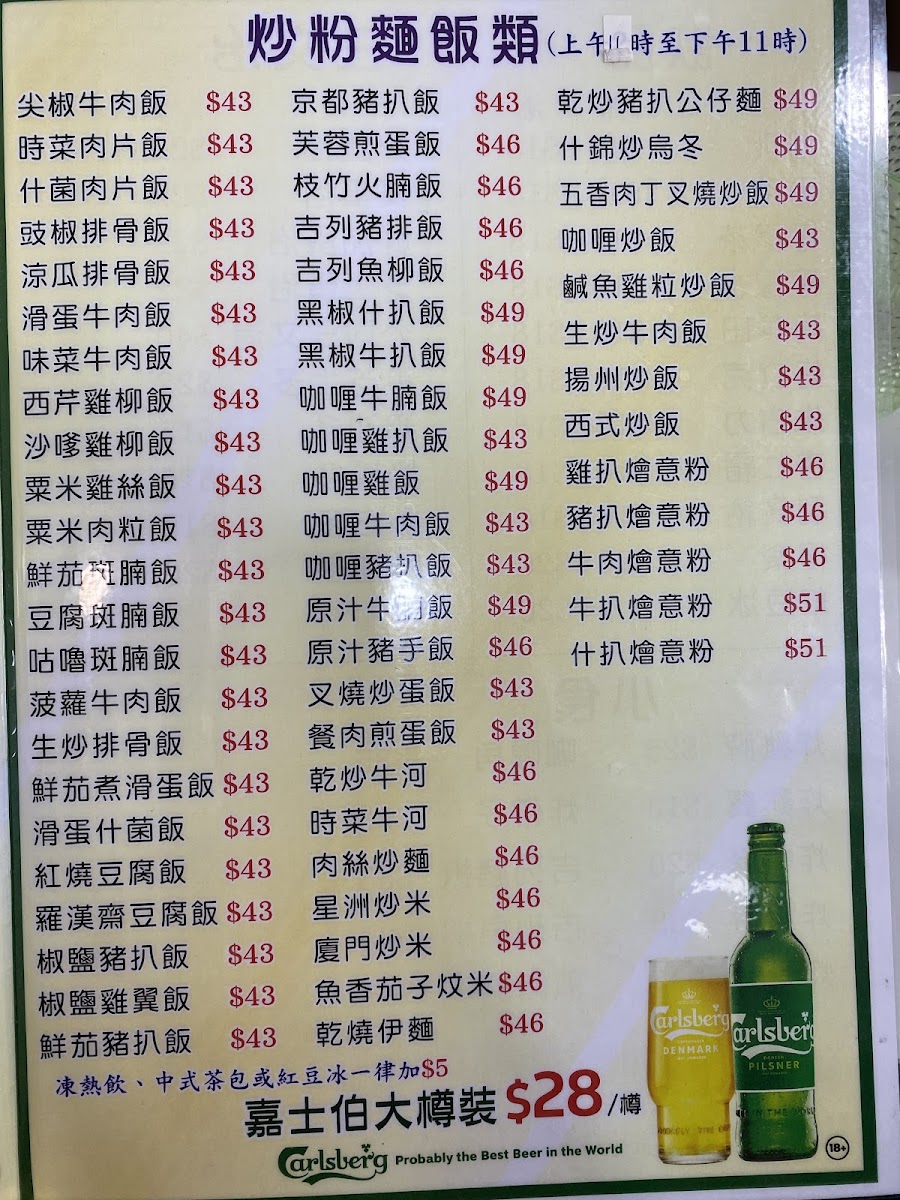 炒粉麵飯類(上午 時至下午11時)
尖椒牛肉飯 $43
時菜肉片飯 $43
什菌肉片飯 $43
豉椒排骨飯 $43
涼瓜排骨飯 $43
滑蛋牛肉飯 $43
味菜牛肉飯 $43
西芹雞柳飯 $43
沙嗲雞柳飯 $43
粟米雞絲飯 $43
粟米肉粒飯 $43
鮮茄斑腩飯 $43
豆腐斑腩飯 $43
咕嚕斑腩飯 $43
菠蘿牛肉飯 $43
生炒排骨飯 $43
鮮茄煮滑蛋飯 $43
滑蛋什菌飯 $43
紅燒豆腐飯 $43
羅漢齋豆腐飯 $43
椒鹽豬扒飯 $43
椒鹽雞翼飯 $43
鮮茄豬扒飯 $43
京都豬扒飯 $43
芙蓉煎蛋飯 $46
枝竹火腩飯 $46
吉列豬排飯 $46
吉列魚柳飯 $46
黑椒什扒飯 $49
黑椒牛扒飯 $49
咖喱牛腩飯 $49
咖喱雞扒飯 $43
咖喱雞飯 $49
咖喱牛肉飯 $43
咖喱豬扒飯 $43
原汁牛腩飯 $49
原汁豬手飯 $46
叉燒炒蛋飯 $43
餐肉煎蛋飯 $43
乾炒牛河 $46
時菜牛河 $46
肉絲炒麵 $46
星洲炒米 $46
廈門炒米 $46
魚香茄子炆米 $46
乾燒伊麵 $46
乾炒豬扒公仔麵 $49
什錦炒烏冬 $49
五香肉丁叉燒炒飯 $49
咖喱炒飯 $43
鹹魚雞粒炒飯 $49
生炒牛肉飯 $43
揚州炒飯 $43
西式炒飯 $43
雞扒燴意粉 $46
豬扒燴意粉 $46
牛肉燴意粉 $46
牛扒燴意粉 $51
什扒燴意粉 $51
凍熱飲、中式茶包或紅豆冰一律加$5
嘉士伯大樽裝 $28/樽
Carlsberg Probably the Best Beer in the World
Carlsberg
DENMARK
Carlsberg
PILSNER
18+